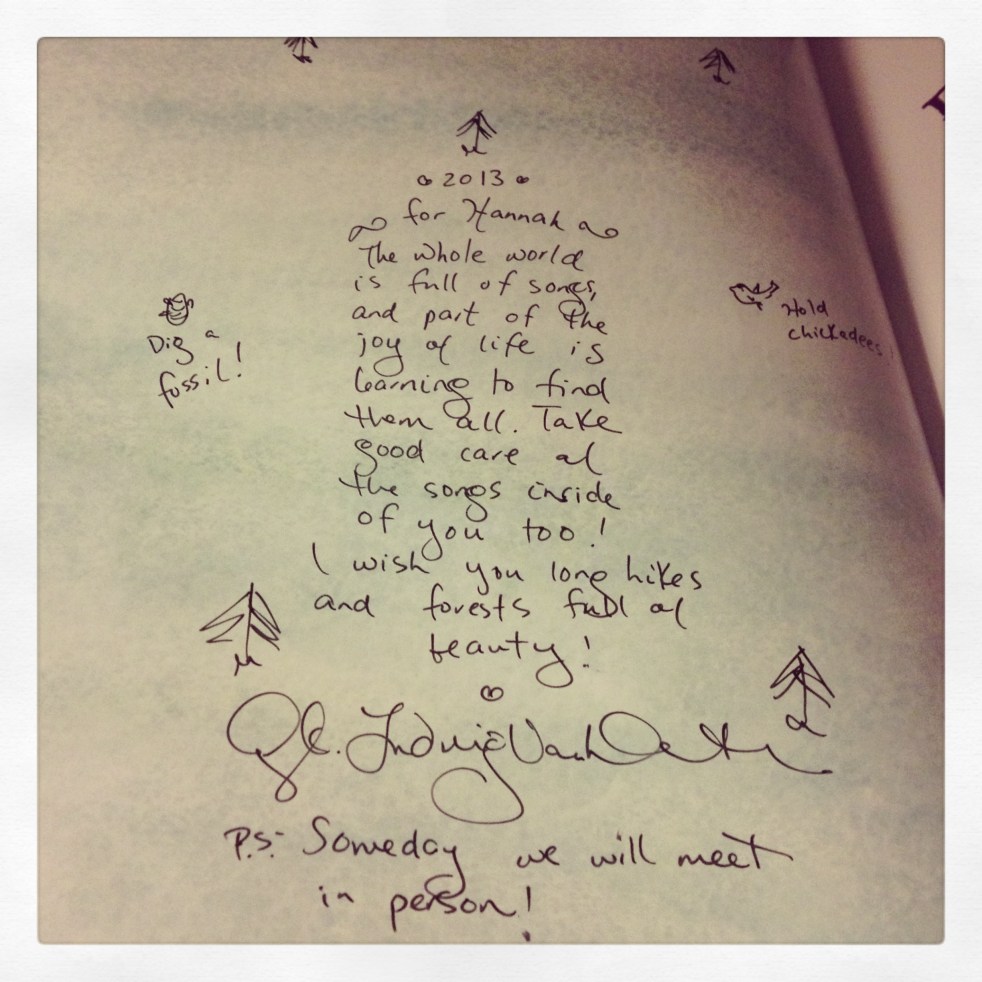 2013
for Hannah
The whole world
is full of songs,
and part of the
joy of life is
learning to find
them all. Take
good care of
the songs inside
of you too!
I wish you long hikes
and forests full of
beauty!
Dig a
fossil!
Hold
chickadees!
P.S. Someday we will meet
in person!